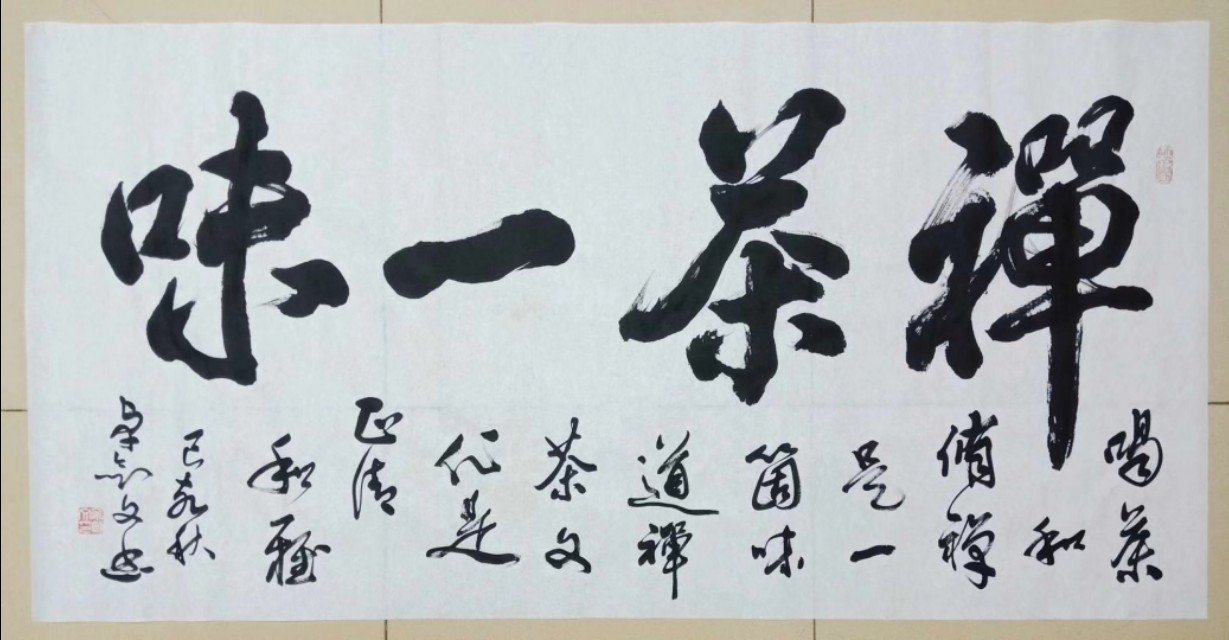 禪茶一味
喝茶
和
脩禪
是一
箇味
道禪
茶文
化是
正清
和雅
己亥秋
文书